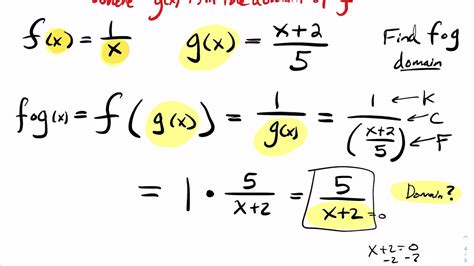 where g(x) is in the domain of f
f(x) = 1/x g(x) = x+2/5 Find fog
domain
fog(x) = f(g(x)) = 1/g(x) = 1/(x+2/5) ← K
← C
← F
= 1 · 5/x+2 = 5/x+2 =0 Domain?
x+2=0
-2 -2